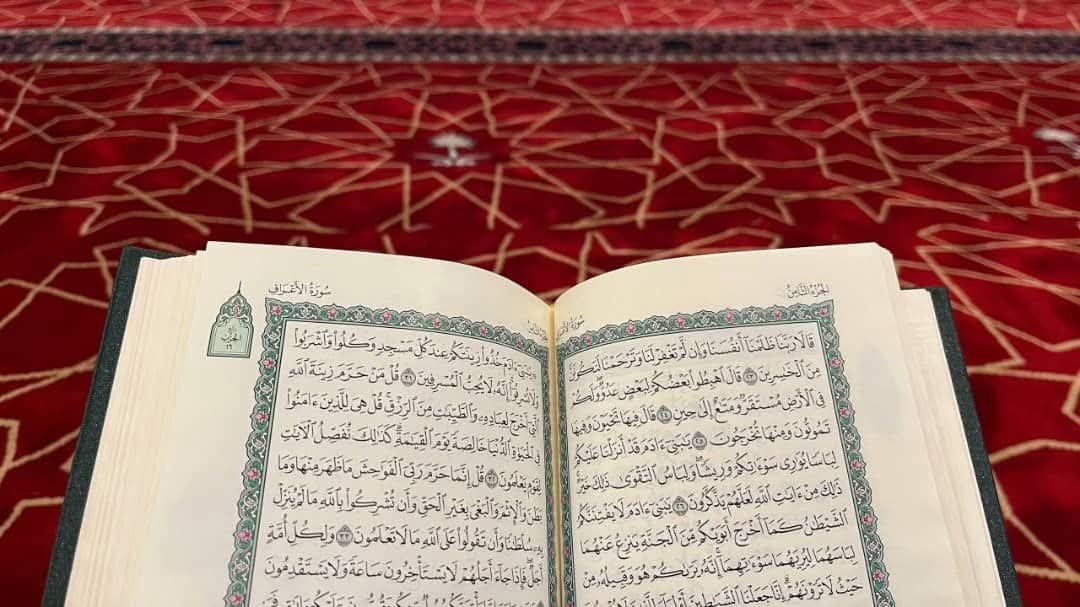 الجزء الثامن
سورة الأعراف
قَالَا رَبَّنَا ظَلَمْنَا أَنفُسَنَا وَإِن لَّمْ تَغْفِرْ لَنَا وَتَرْحَمْنَا لَنَكُونَنَّ
مِنَ ٱلْخَٰسِرِينَ ٢٣ قَالَ ٱهْبِطُوا۟ بَعْضُكُمْ لِبَعْضٍ عَدُوٌّ وَلَكُمْ
فِى ٱلْأَرْضِ مُسْتَقَرٌّ وَمَتَٰعٌ إِلَىٰ حِينٍ ٢٤ قَالَ فِيهَا تَحْيَوْنَ وَفِيهَا
تَمُوتُونَ وَمِنْهَا تُخْرَجُونَ ٢٥ يَٰبَنِىٓ ءَادَمَ قَدْ أَنزَلْنَا عَلَيْكُمْ
لِبَاسًا يُوَٰرِى سَوْءَٰتِكُمْ وَرِيشًا ۖ وَلِبَاسُ ٱلتَّقْوَىٰ ذَٰلِكَ خَيْرٌ ۚ
ذَٰلِكَ مِنْ ءَايَٰتِ ٱللَّهِ لَعَلَّهُمْ يَذَّكَّرُونَ ٢٦ يَٰبَنِىٓ ءَادَمَ لَا يَفْتِنَنَّكُمُ
ٱلشَّيْطَٰنُ كَمَآ أَخْرَجَ أَبَوَيْكُم مِّنَ ٱلْجَنَّةِ يَنزِعُ عَنْهُمَا
لِبَاسَهُمَا لِيُرِيَهُمَا سَوْءَٰتِهِمَآ ۗ إِنَّهُۥ يَرَىٰكُمْ هُوَ وَقَبِيلُهُۥ مِنْ
حَيْثُ لَا تَرَوْنَهُمْ ۗ إِنَّا جَعَلْنَا ٱلشَّيَٰطِينَ أَوْلِيَآءَ
سورة الأعراف
الحزب
١٦
يَٰبَنِىٓ ءَادَمَ خُذُوا۟ زِينَتَكُمْ عِندَ كُلِّ مَسْجِدٍ وَكُلُوا۟ وَٱشْرَبُوا۟
وَلَا تُسْرِفُوٓا۟ ۚ إِنَّهُۥ لَا يُحِبُّ ٱلْمُسْرِفِينَ ٣١ قُلْ مَنْ حَرَّمَ زِينَةَ ٱللَّهِ
ٱلَّتِىٓ أَخْرَجَ لِعِبَادِهِۦ وَٱلطَّيِّبَٰتِ مِنَ ٱلرِّزْقِ ۚ قُلْ هِىَ لِلَّذِينَ ءَامَنُوا۟
فِى ٱلْحَيَوٰةِ ٱلدُّنْيَا خَالِصَةً يَوْمَ ٱلْقِيَٰمَةِ ۗ كَذَٰلِكَ نُفَصِّلُ ٱلْءَايَٰتِ
لِقَوْمٍ يَعْلَمُونَ ٣٢ قُلْ إِنَّمَا حَرَّمَ رَبِّىَ ٱلْفَوَٰحِشَ مَا ظَهَرَ مِنْهَا وَمَا
بَطَنَ وَٱلْإِثْمَ وَٱلْبَغْىَ بِغَيْرِ ٱلْحَقِّ وَأَن تُشْرِكُوا۟ بِٱللَّهِ مَا لَمْ يُنَزِّلْ
بِهِۦ سُلْطَٰنًا وَأَن تَقُولُوا۟ عَلَى ٱللَّهِ مَا لَا تَعْلَمُونَ ٣٣ وَلِكُلِّ أُمَّةٍ
أَجَلٌ ۖ فَإِذَا جَآءَ أَجَلُهُمْ لَا يَسْتَأْخِرُونَ سَاعَةً ۖ وَلَا يَسْتَقْدِمُونَ